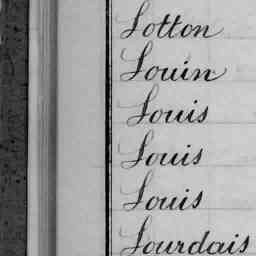 Lotton
Louin
Louis
Louis
Louis
Lourdais